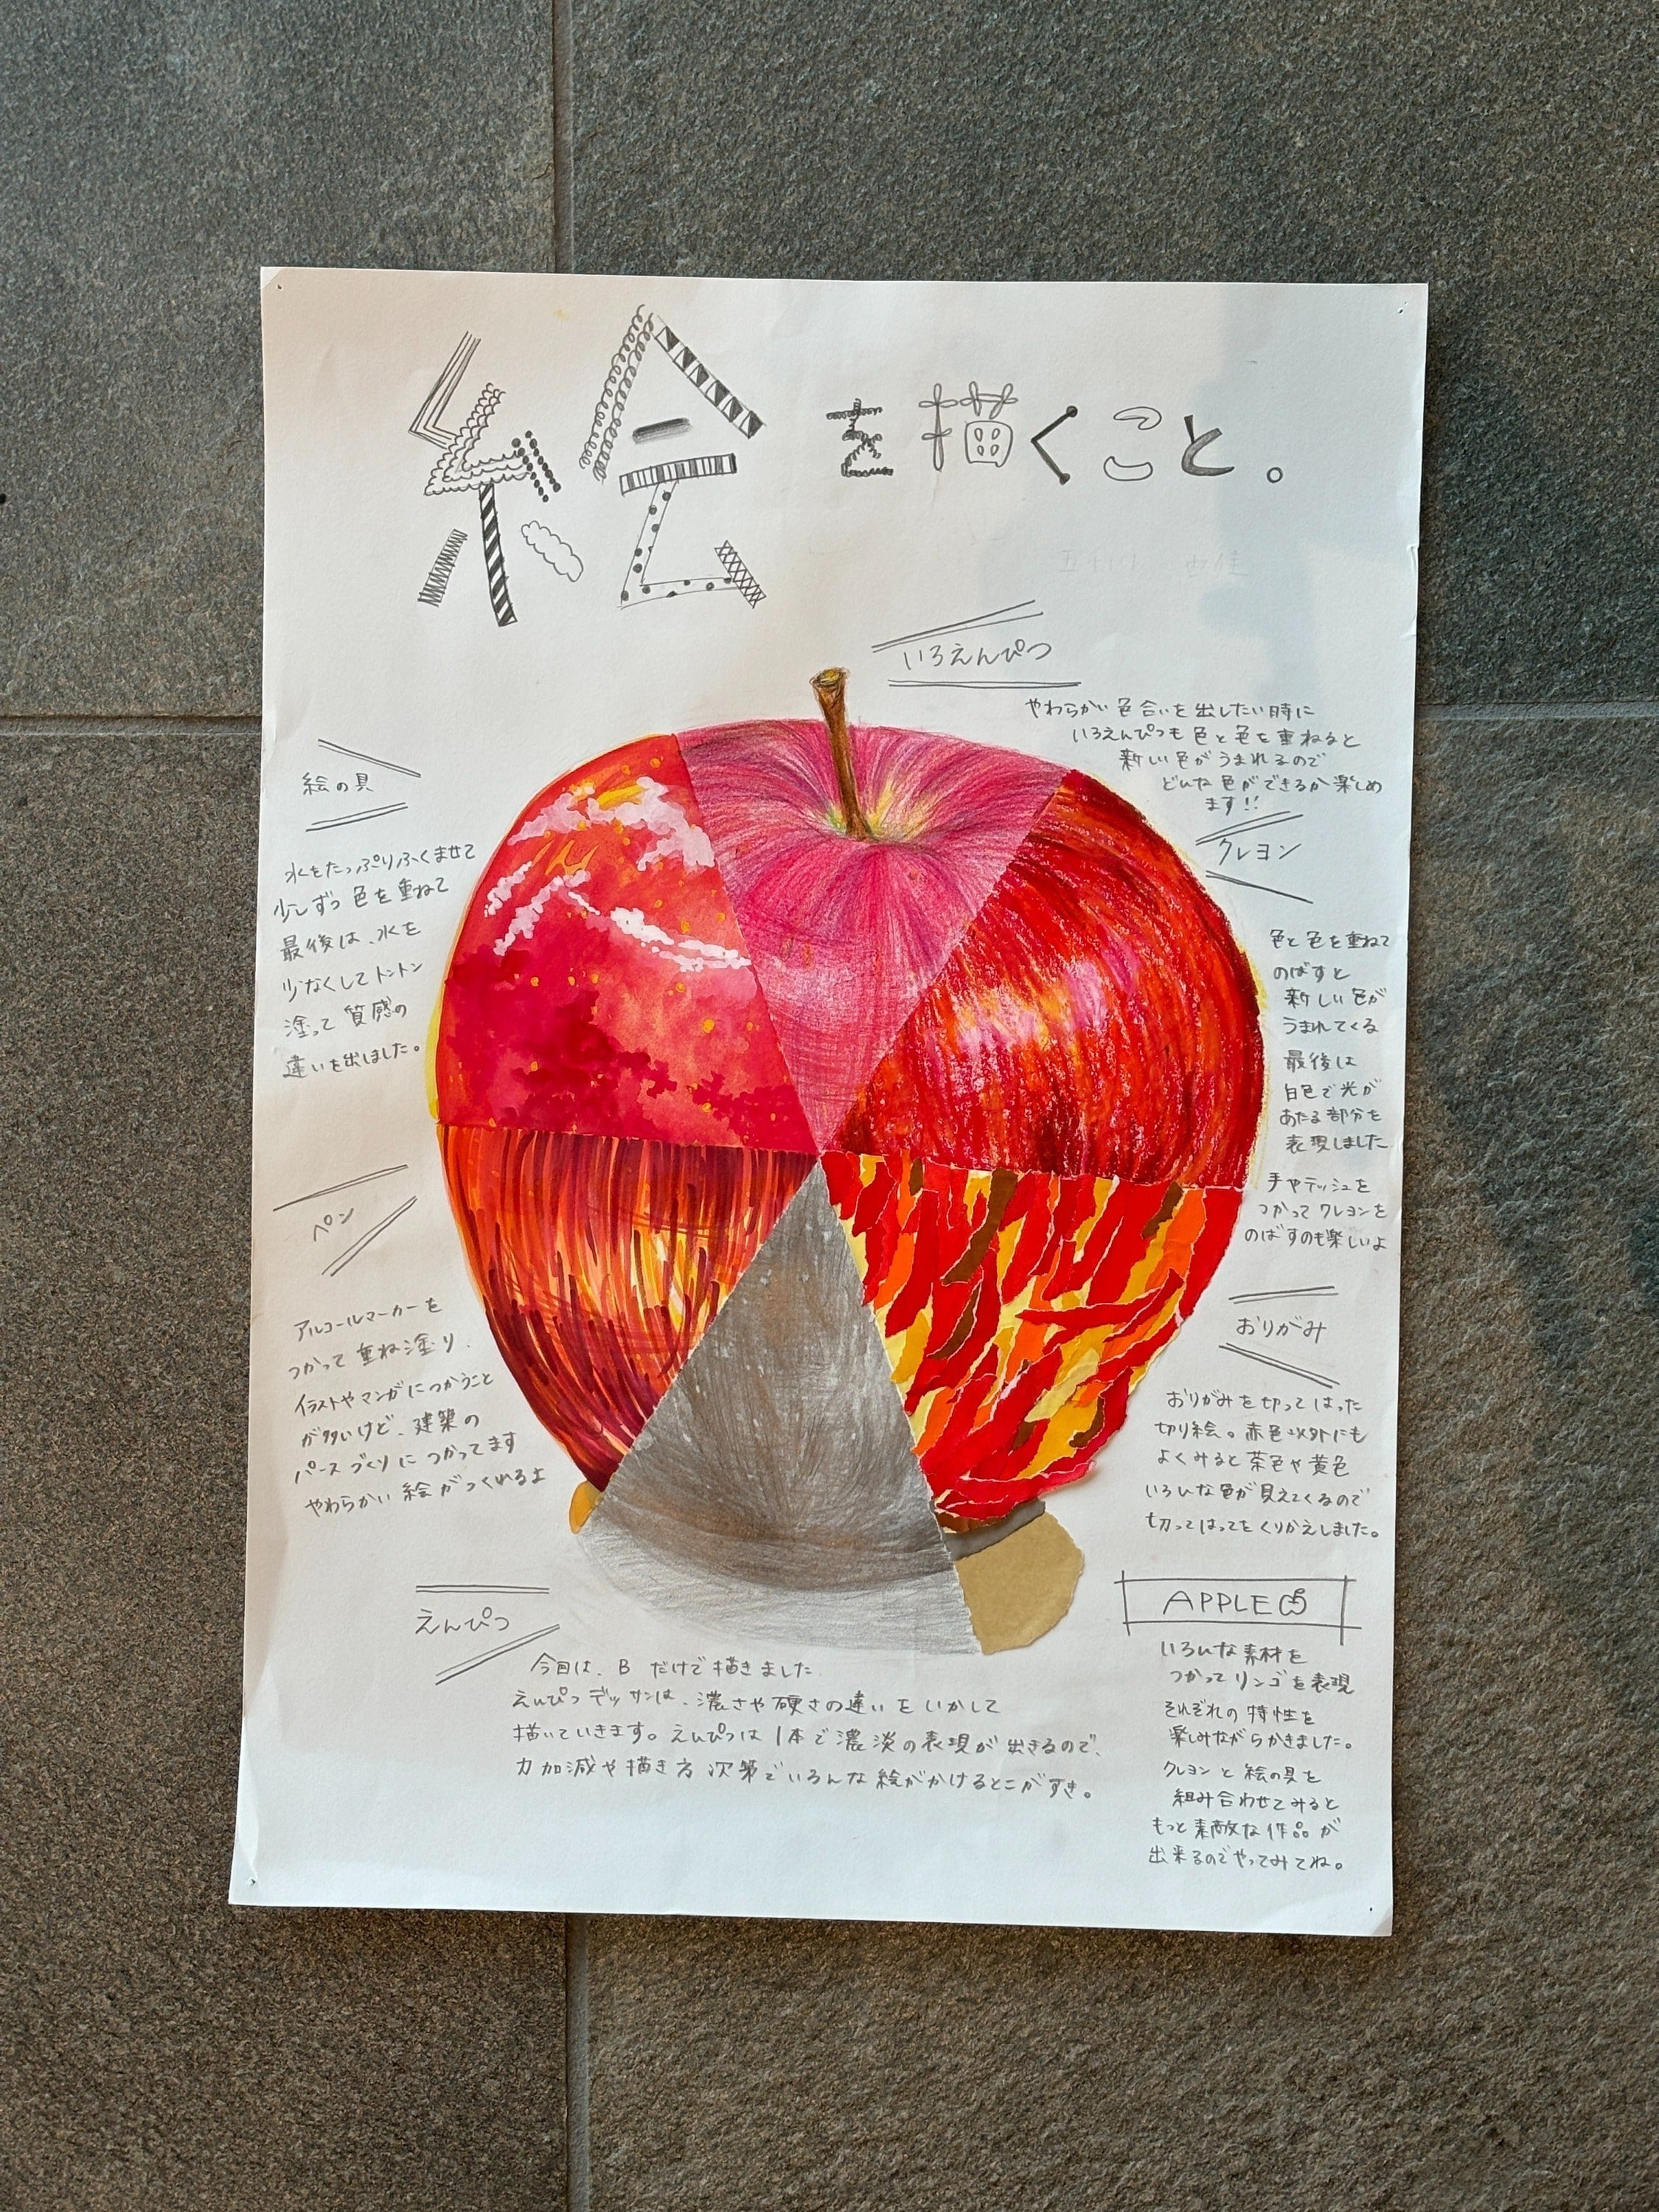 絵を描くこと。
いろえんぴつ
やわらかい色合いを出したい時に
いろえんぴつも色と色を重ねると
新しい色がうまれるので
どんな色ができるか楽しめ
ます!!
クレヨン
色と色を重ねて
のばすと
新しい色が
うまれてくる
最後は
白色で光が
あたる部分を
表現しました
手やテッシュを
つかってクレヨンを
のばすのも楽しいよ
おりがみ
おりがみを切ってはった
切り絵。赤色以外にも
よくみると茶色や黄色
いろんな色が見えてくるので
切ってはってをくりかえしました。
絵の具
水をたっぷりふくませて
少しずつ色を重ねて
最後は、水を
少なくしてトントン
塗って質感の
違いを出しました。
ペン
アルコールマーカーを
つかって重ね塗り.
イラストやマンガにつかうこと
が多いけど、建築の
パースづくりにつかってます
やわらかい絵がつくれるよ
えんぴつ
今回は、Bだけで描きました.
えんぴつデッサンは、濃さや硬さの違いをいかして
描いていきます。えんぴつは1本で濃淡の表現が出きるので、
力加減や描き方次第でいろんな絵がかけるとこがすき。
APPLE
いろんな素材を
つかってリンゴを表現
それぞれの特性を
楽しみながらかきました。
クレヨンと絵の具を
組み合わせてみると
もっと素敵な作品が
出来るのでやってみてね。